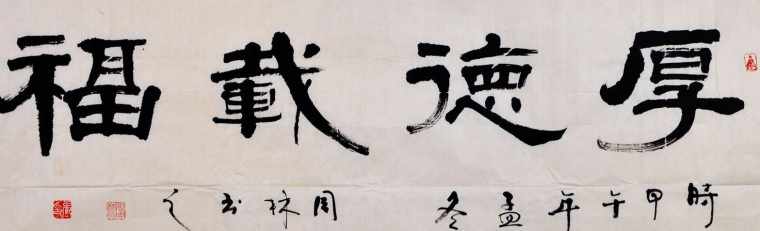 厚德載福
時甲午年孟冬周林书之